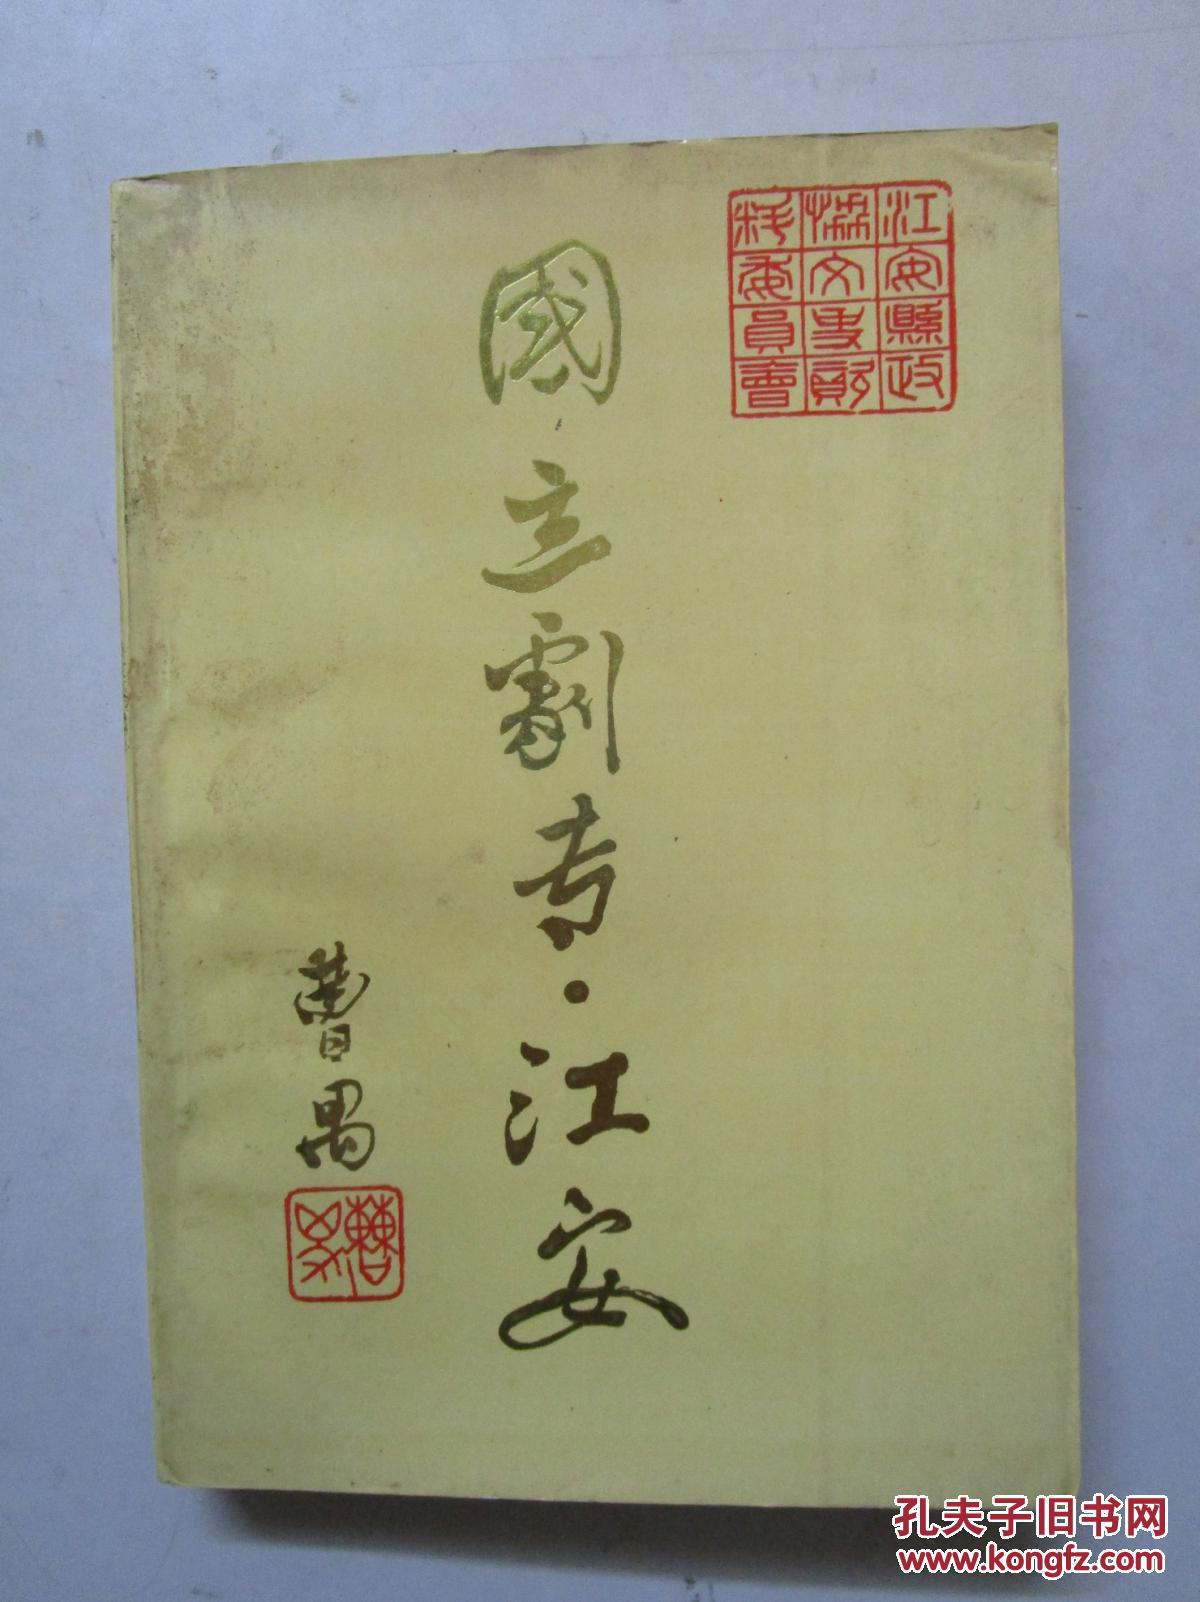 江安縣政
協文史資
料委員會
國立劇专·江安
曹禺
曹禺
孔夫子旧书网
www.kongfz.com